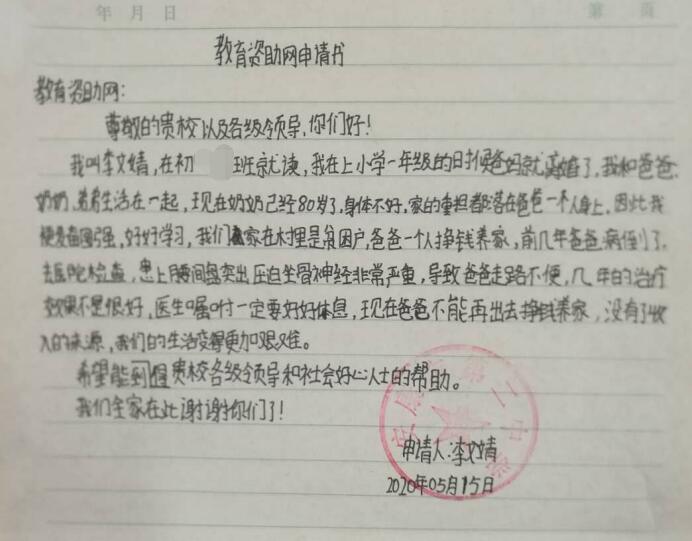 年 月 日 第 页
教育资助网申请书
教育资助网:
尊敬的贵校以及各级领导,你们好!
我叫李文婧,在初 班就读,我在上小学一年级的时候爸妈就离婚了,我和爸爸.
奶奶.弟弟生活在一起,现在奶奶已经80岁了,身体不好,家的重担都落在爸爸一个人身上,因此我
便发奋图强,好好学习,我们家在村里是贫困户,爸爸一个人挣钱养家,前几年爸爸病倒了.
去医院检查,患上腰间盘突出压迫坐骨神经非常严重,导致爸爸走路不便,几年的治疗
效果不是很好,医生嘱咐一定要好好休息,现在爸爸不能再出去挣钱养家,没有了收
入的来源,我们的生活变得更加艰难。
希望能到得贵校各级领导和社会好心人士的帮助。
我们全家在此谢谢你们了!
第二中学
申请人:李文婧
2020年05月15日